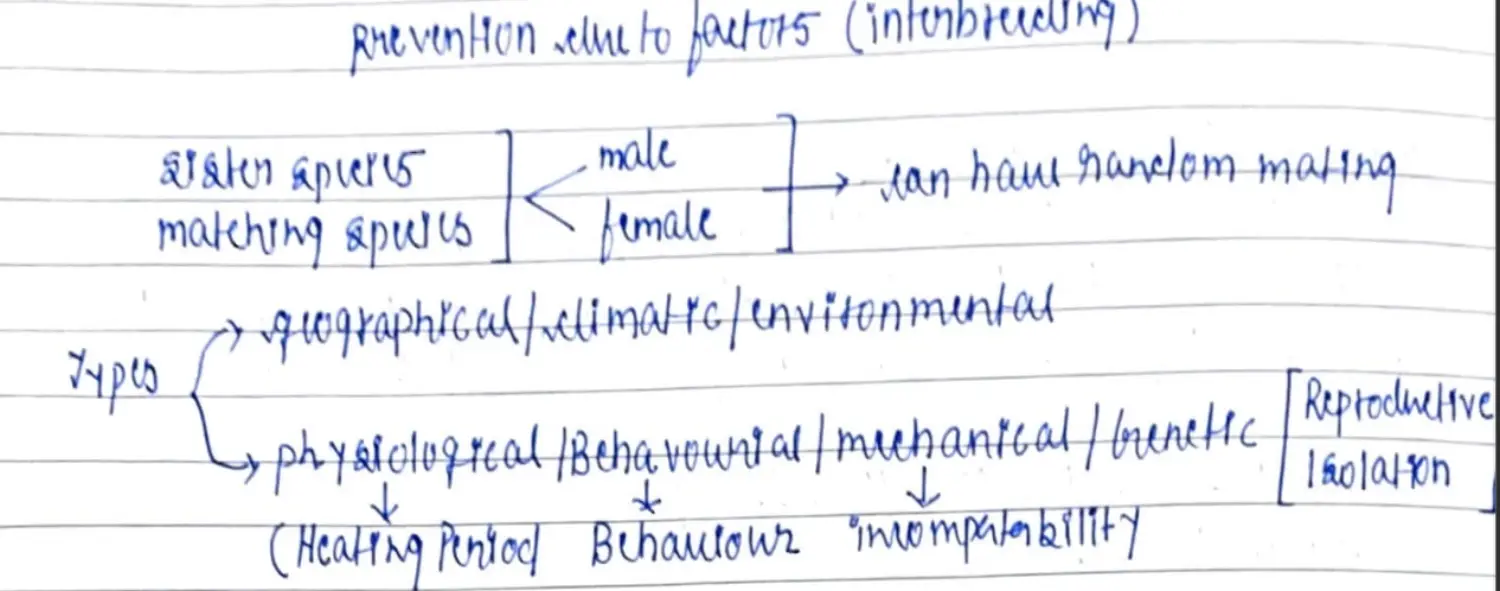 Prevention due to factors (interbreeding)
sister species
matching species
male
female
can have random mating
Types
geographical/climatic/environmental
physiological/Behavourial/mechanical/Genetic [Reproductive
Isolation
(Heating Period Behaviour incompatability